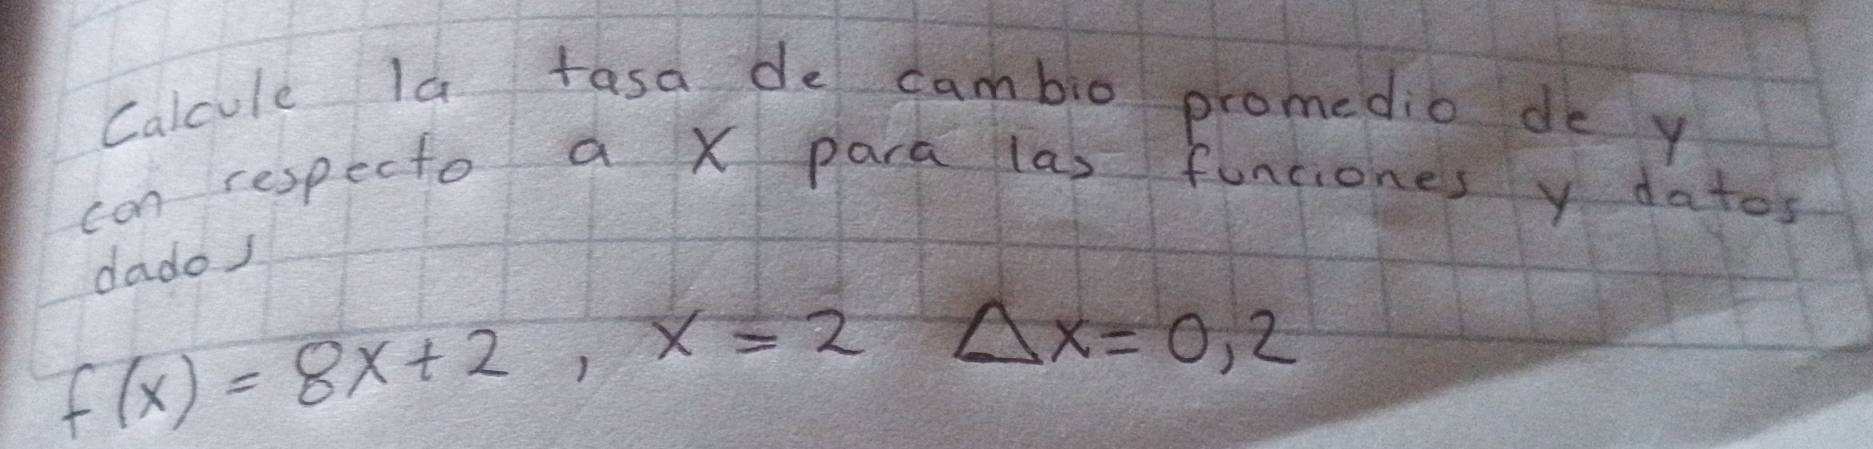 Calcule la tasa de cambio promedio de y
con respecto a X para las funciones y datos
dados
f(x) = 8x+2 , x = 2 Δx = 0,2